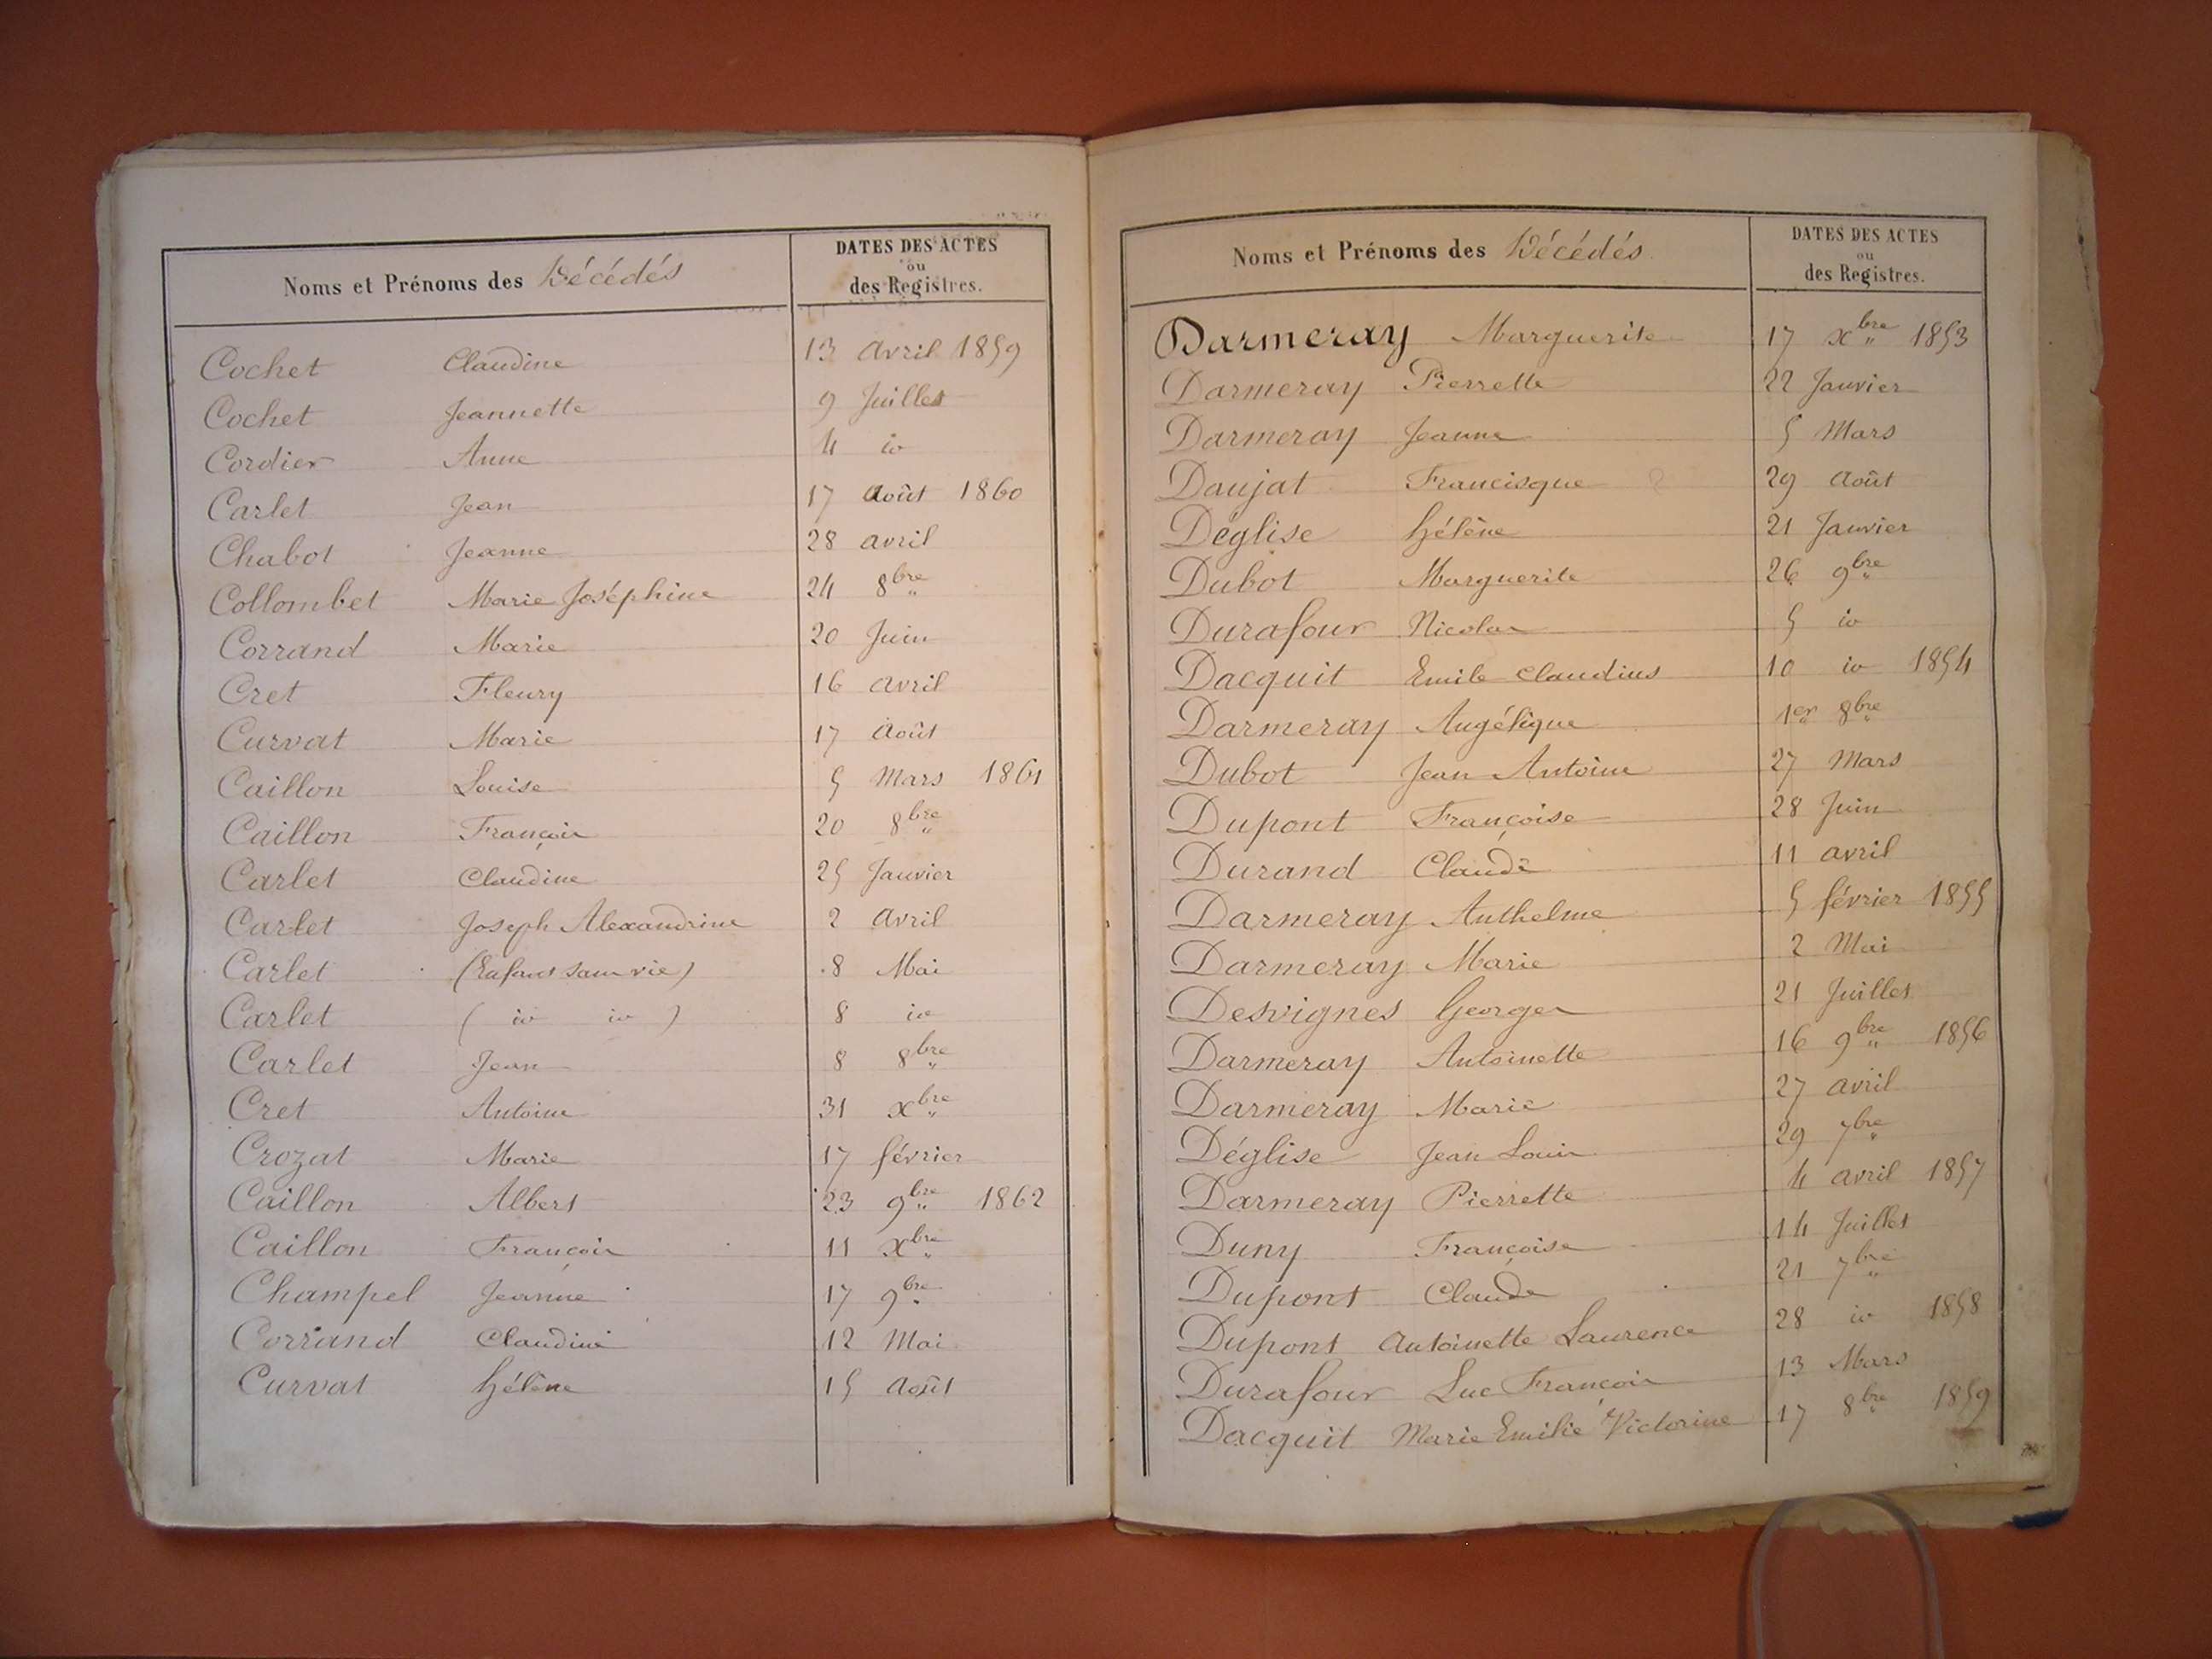 Noms et Prénoms des Décédés
DATES DES ACTES
ou
des Registres.
Cochet Claudine 13 Avril 1859
Cochet Jeannette 9 Juillet
Cordier Anne 4 id
Carlet Jean 17 Août 1860
Chabot Jeanne 28 avril
Collombet Marie Joséphine 24 8bre
Corrand Marie 20 Juin
Cret Fleury 16 avril
Curvat Marie 17 Août
Caillon Louise 5 Mars 1861
Caillon François 20 8bre
Carlet Claudine 25 Janvier
Carlet Joseph Alexandrine 2 Avril
Carlet (Enfant sans vie) 8 Mai
Carlet ( id id ) 8 id
Carlet Jean 8 8bre
Cret Antoine 31 xbre
Crozat Marie 17 février
Caillon Albert 23 9bre 1862
Caillon François 11 xbre
Champel Jeanne 17 9bre
Corrand Claudine 12 Mai
Curvat Hélène 15 Août
Noms et Prénoms des Décédés
DATES DES ACTES
ou
des Registres.
Darmeray Marguerite 17 xbre 1853
Darmeray Pierrette 22 Janvier
Darmeray Jeanne 5 Mars
Daujat Francisque 29 Août
Déglise Hélène 21 Janvier
Dubot Marguerite 26 9bre
Durafour Nicolas 5 id
Dacquit Emile Claudius 10 id 1854
Darmeray Angélique 1er 8bre
Dubot Jean Antoine 27 Mars
Dupont Françoise 28 Juin
Durand Claude 11 avril
Darmeray Anthelme 5 février 1855
Darmeray Marie 2 Mai
Desvignes Georges 21 Juillet
Darmeray Antoinette 16 9bre 1856
Darmeray Marie 27 avril
Déglise Jean Louis 29 7bre
Darmeray Pierrette 4 avril 1857
Duny Françoise 14 Juillet
Dupont Claude 21 7bre
Dupont Antoinette Laurence 28 id 1858
Durafour Luc François 13 Mars
Dacquit Marie Emilie Victorine 17 8bre 1859